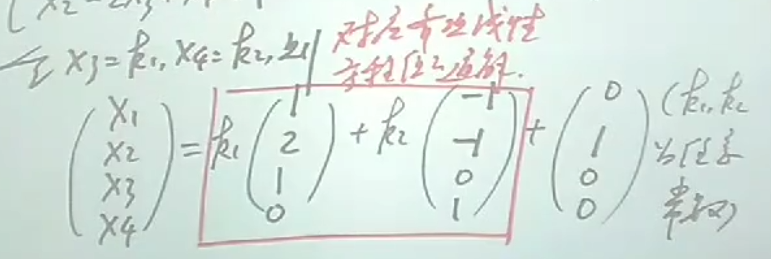 x₂=2x₃
令 x₃=k₁, x₄=k₂, 则 对应齐次线性
方程组之通解.
(x₁ x₂ x₃ x₄)ᵀ = k₁(1 2 1 0)ᵀ + k₂(-1 -1 0 1)ᵀ + (0 1 0 0)ᵀ (k₁,k₂ 为任意常数)